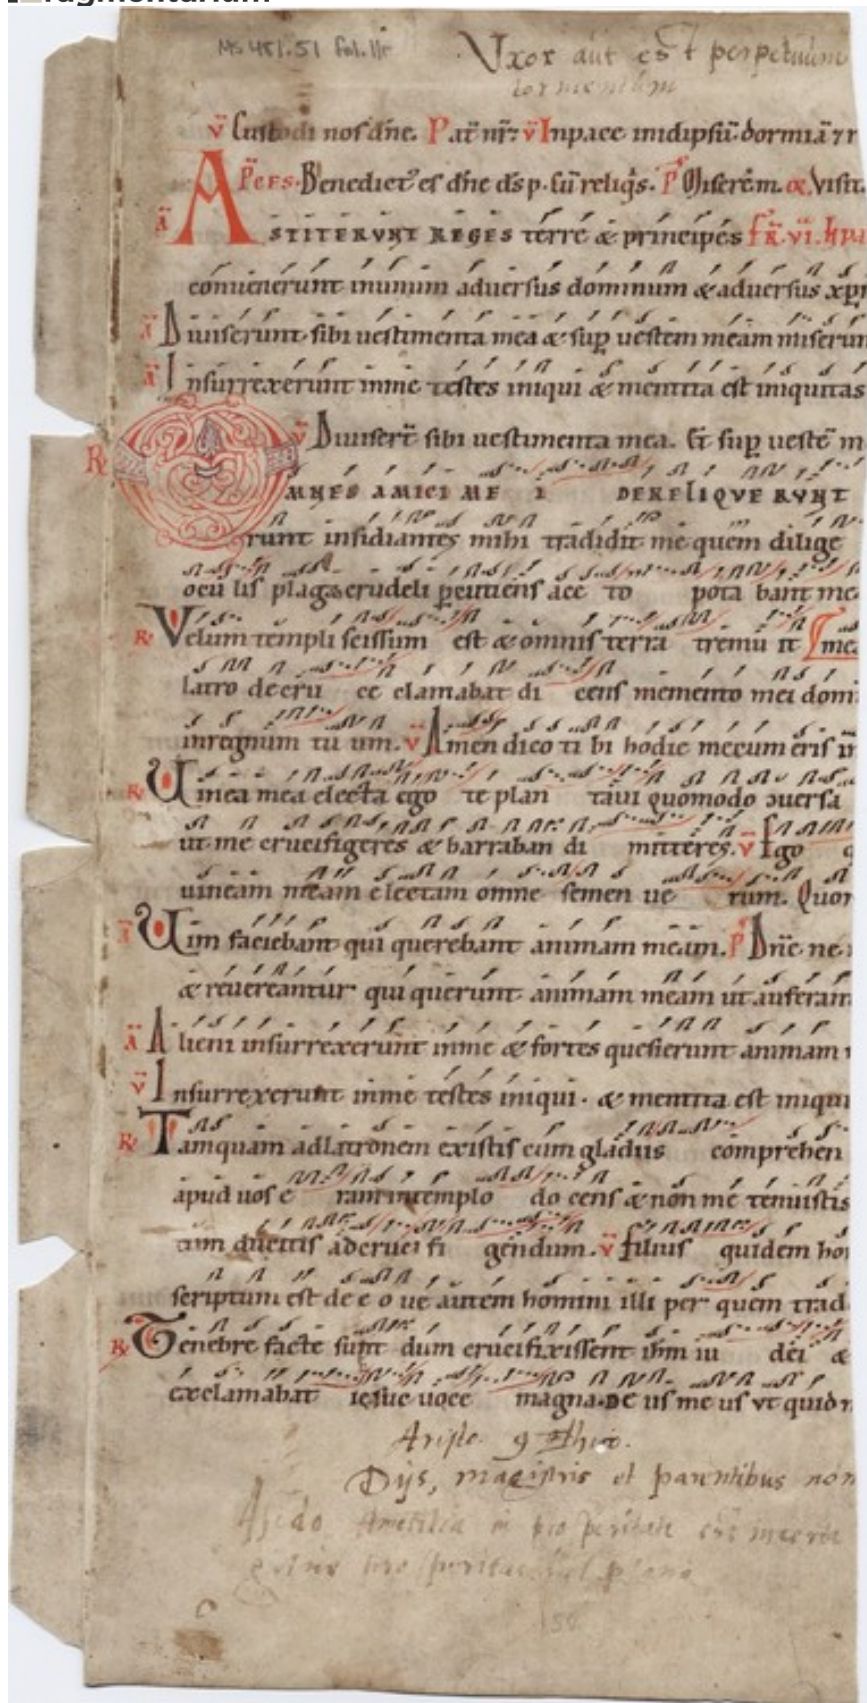 fragmentarium
MS 481.51 fol. 11r
Uxor aut est perpetuum
tormentum
v̄ Custodi nos dn̄e. Pat̄ nr̄: v̄ In pace inidipsū dormiā & r
Ad P̄CES. Benedict' es dn̄e ds̄ p. sū reliq̄s. p̄ Miserēm. & Visit.
ā ASTITERVNT REGES terrę & principes FR̄. VI.
convenerunt inunum adversus dominum & adversus xp̄
ā Diviserunt sibi vestimenta mea & sup̄ vestem meam miserun
ā Insurrexerunt inme testes iniqui & mentita est iniquitas
v̄ Diviser̄t sibi vestimenta mea. Et sup̄ vestē m
R̄ OMNES AMICI ME I DERELIQVE RVNT
runt insidiantes mihi tradidit me quem dilige
ocu lis plaga crudeli p̄cutiens ace to pota bant me
R̄ Velum templi scissum est & omnis terra tremu it
latro decru ce clamabat di cens memento mei domi
inregnum tu um. v̄ Amen dico ti bi hodie mecum eris in
R̄ Uinea mea electa ego te plan tavi quomodo ɔversa
ut me crucifigeres & barraban di mitteres. v̄ Ego
vineam meam electam omne semen ve rum. Quor
ā Uim faciebant qui querebant animam meam. p̄ Dn̄e ne
& revereantur qui querunt animam meam ut auferan
ā Alieni insurrexerunt inme & fortes quesierunt animam
v̄ Insurrexerunt inme testes iniqui. & mentita est iniqui
R̄ Tamquam adlatronem existis cum gladiis comprehen
apud vos e ram intemplo do cens & non me tenuistis
ducitis adcruci fi gendum. v̄ filius quidem ho
scriptum est de e o ve autem homini illi per quem trad
R̄ Tenebre facte sunt dum crucifixissent ihm iu dei &
exclamabat iesus voce magna. DE us me us vt quid
Dijs, magistris et parentibus non